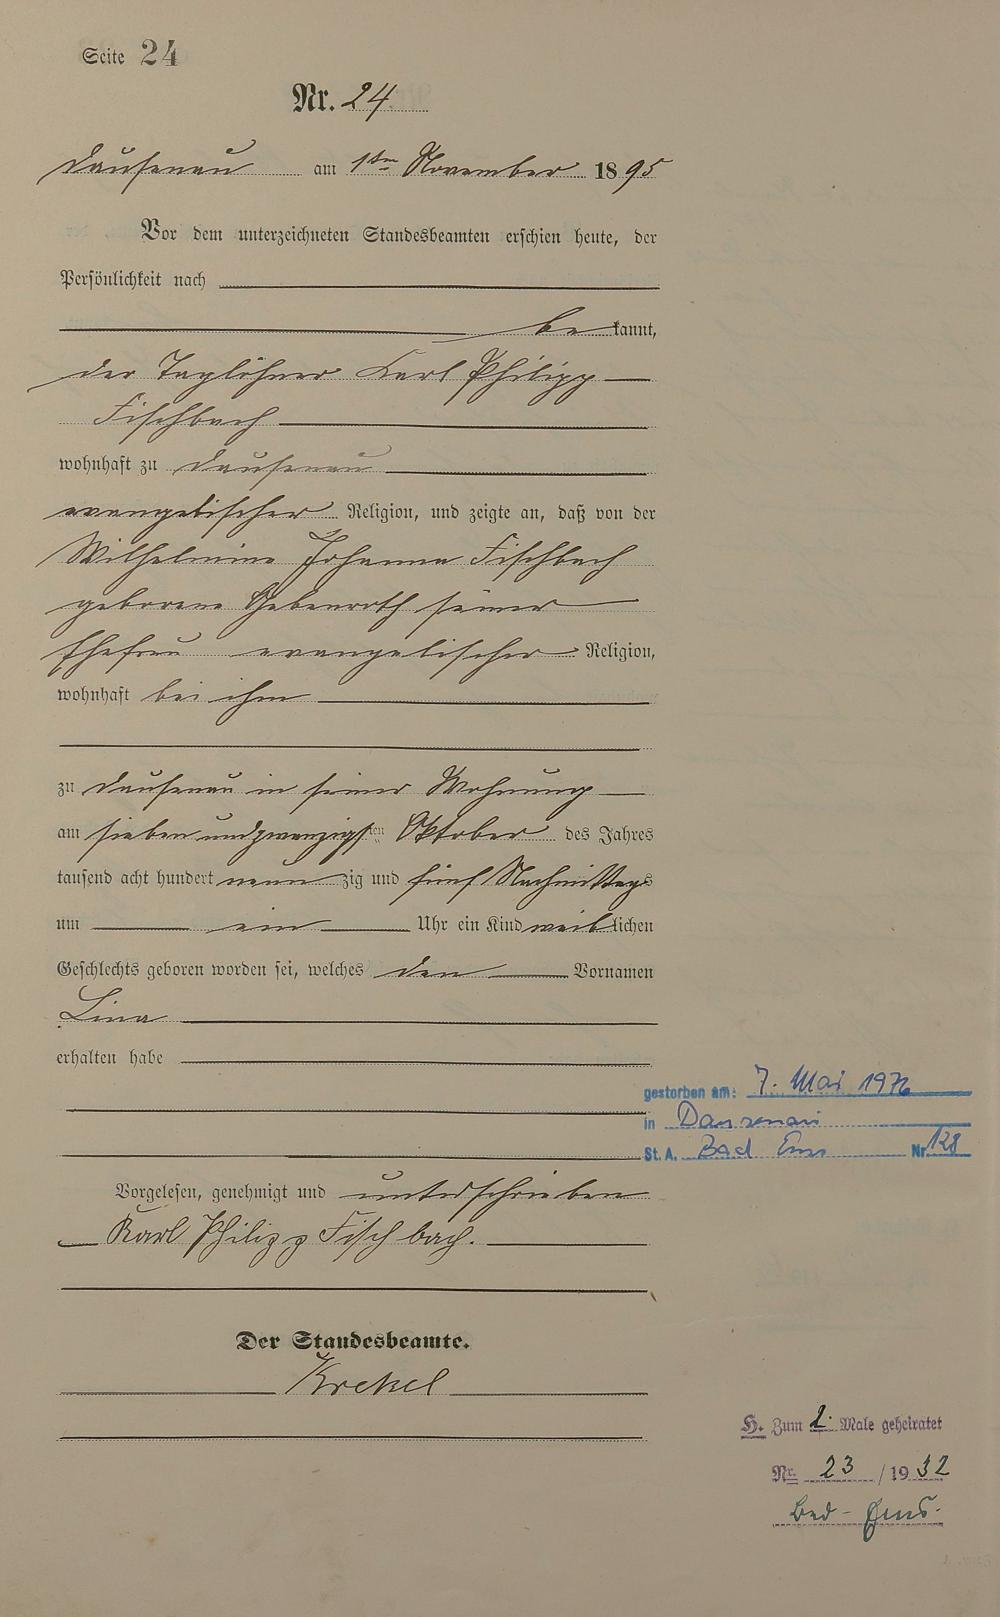 Seite 24
Nr. 24
Dausenau am 1ten November 1895
Vor dem unterzeichneten Standesbeamten erschien heute, der
Persönlichkeit nach
bekannt,
der Taglöhner Karl Philipp
Fischbach
wohnhaft zu Dausenau
evangelischer Religion, und zeigte an, daß von der
Wilhelmine Johanna Fischbach
geborene Hebenroth seiner
Ehefrau evangelischer Religion,
wohnhaft bei ihm
zu Dausenau in seiner Wohnung
am sieben und zwanzigsten Oktober des Jahres
tausend acht hundert neunzig und fünf Nachmittags
um ein Uhr ein Kind weiblichen
Geschlechts geboren worden sei, welches den Vornamen
Lina
erhalten habe
gestorben am: 7. Mai 1976
in Dausenau
St. A. Bad Ems Nr. 128
Vorgelesen, genehmigt und unterschrieben
Karl Philipp Fischbach.
Der Standesbeamte.
Krekel
H. Zum 2. Male geheiratet
Nr. 23 / 1932
Bad-Ems.